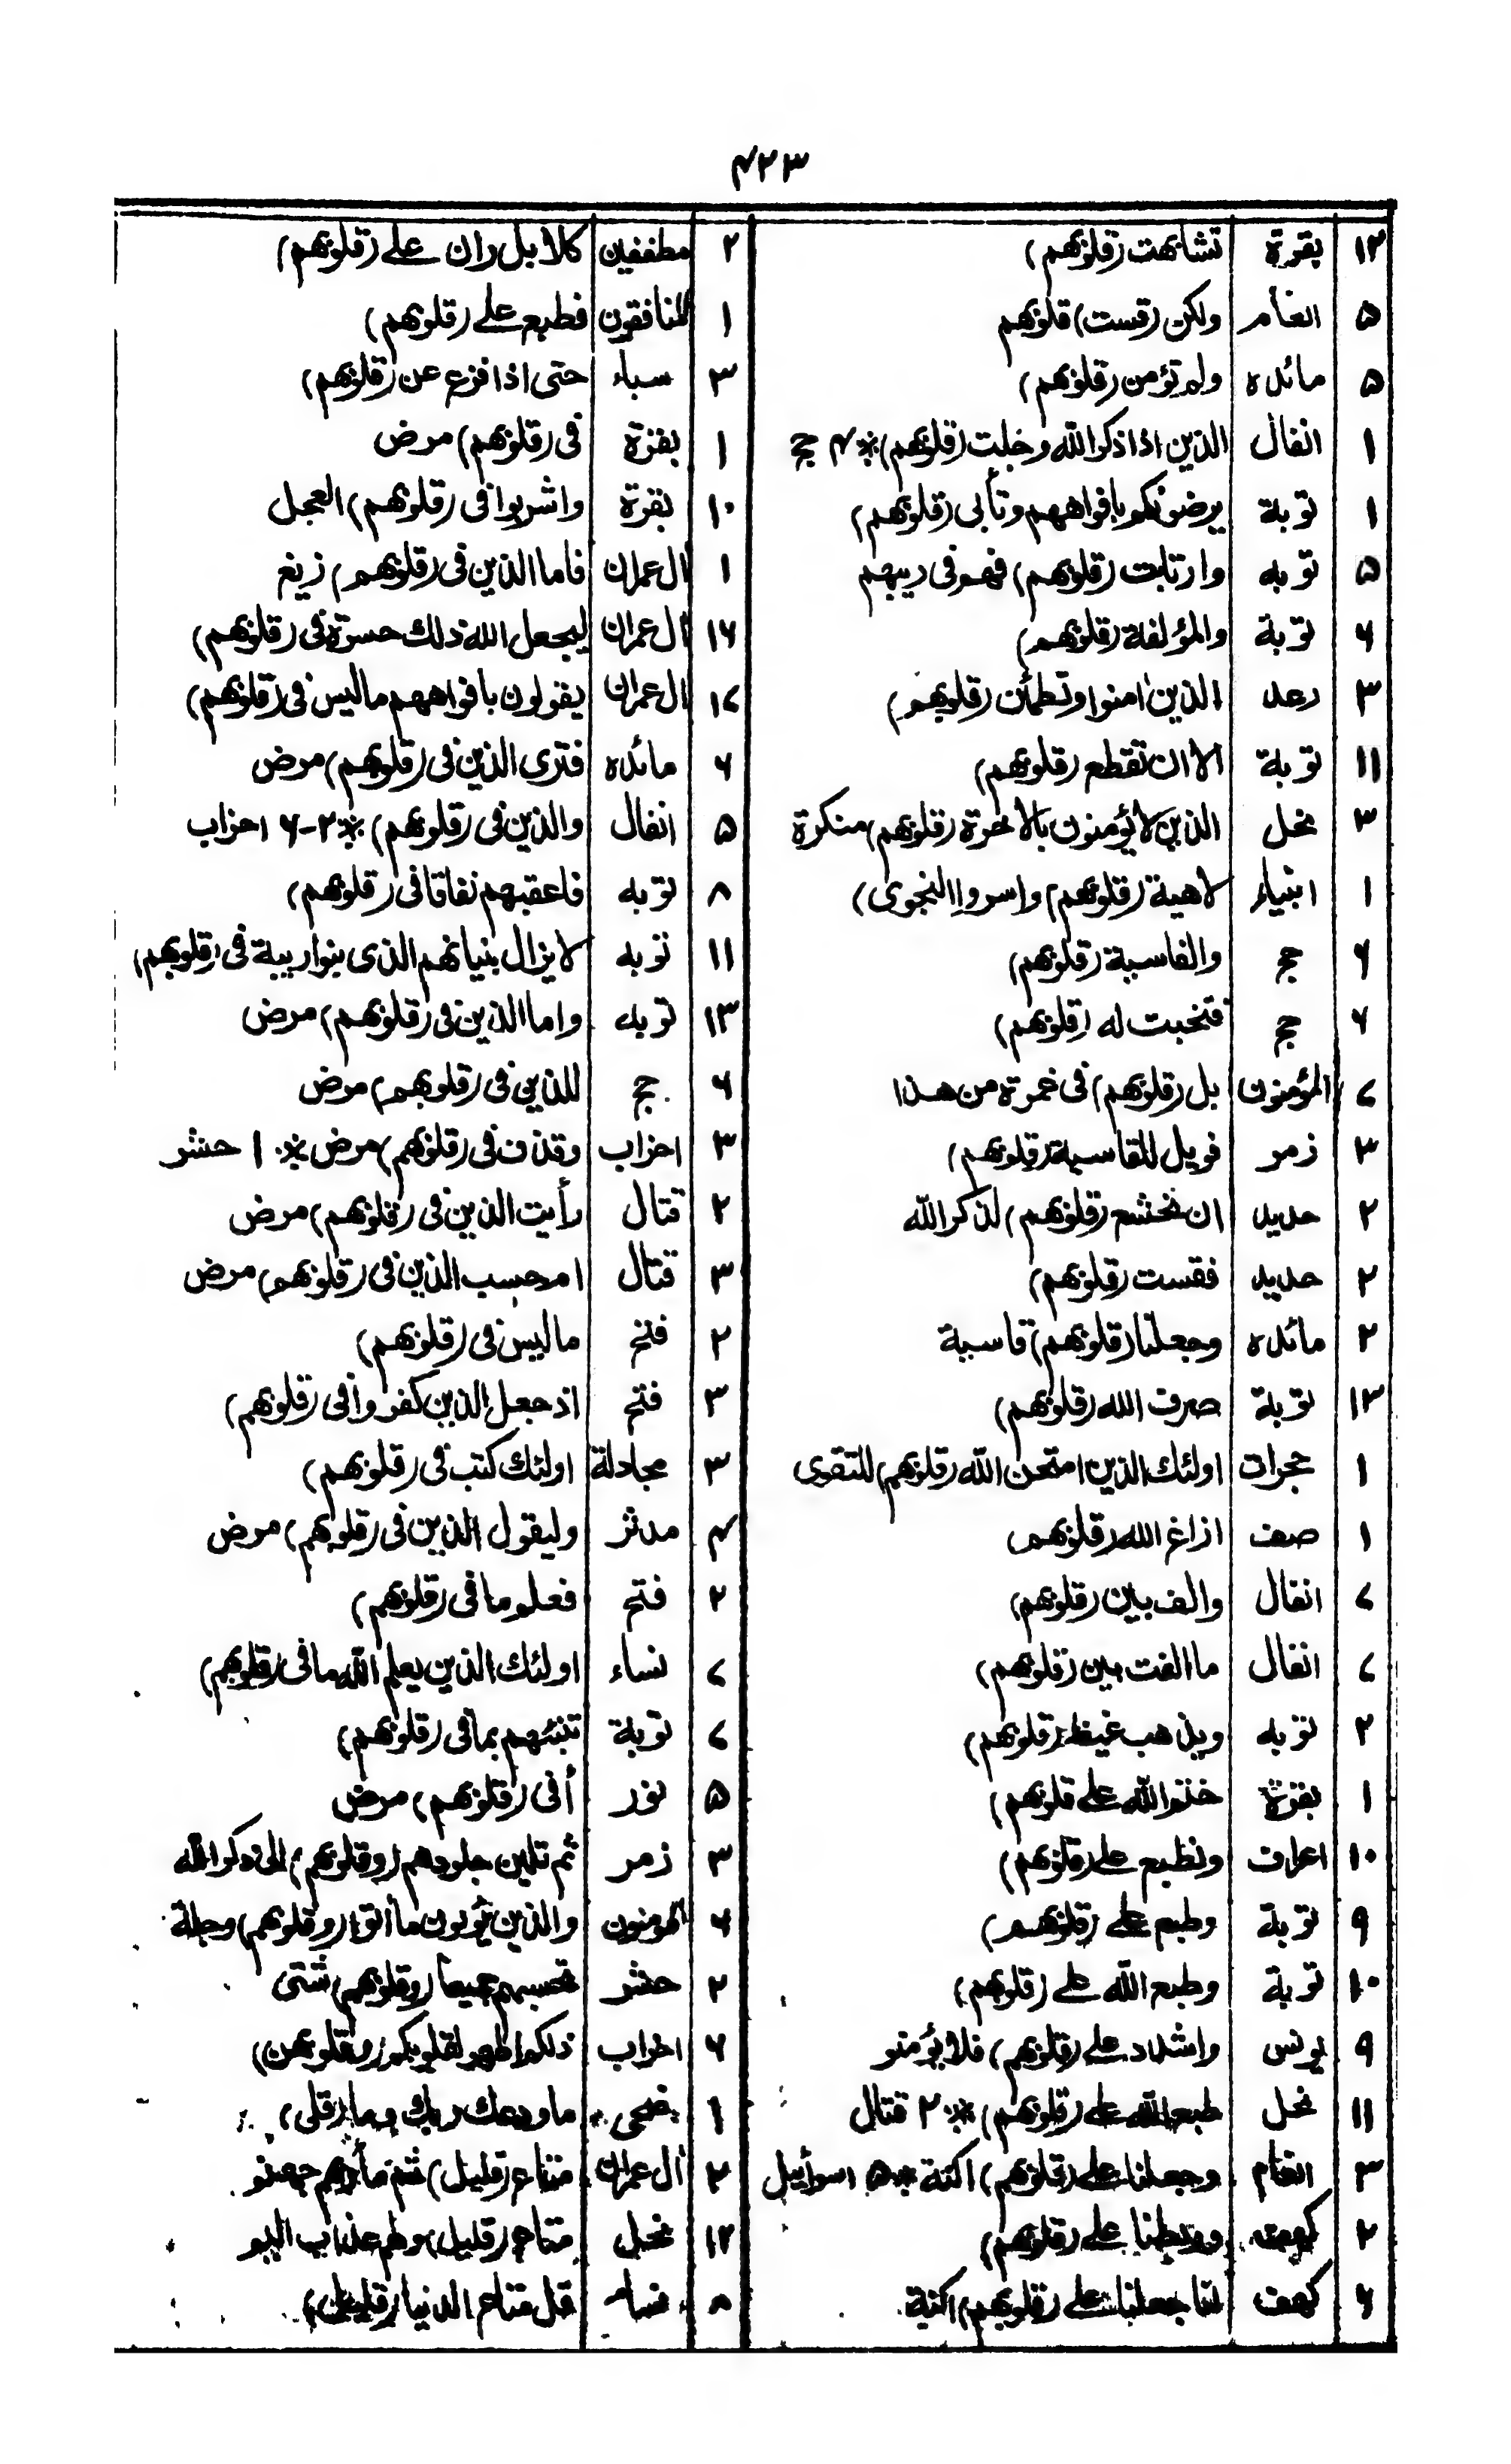 ۴۲۳
۱۴ بقرة تشابهت (قلوبهم)
۵ انعام ولكن (قست) قلوبهم
۵ مائده ولم تؤمن (قلوبهم)
۱ انفال الذين اذا ذكر الله وجلت (قلوبهم) * ۴ حج
۱ توبة يرضونكم بافواههم وتأبى (قلوبهم)
۵ توبه وارتابت (قلوبهم) فهم فى ريبهم
۶ توبة والمؤلفة (قلوبهم)
۳ رعد الذين امنوا وتطمئن (قلوبهم)
۱۱ توبة الا ان تقطع (قلوبهم)
۳ نحل الذين لا يؤمنون بالاخرة (قلوبهم) منكرة
۱ انبياء لاهية (قلوبهم) واسروا النجوى)
۶ حج والقاسية (قلوبهم)
۶ حج فتخبت له (قلوبهم)
۷ المؤمنون بل (قلوبهم) فى غمرة من هذا
۳ زمر فويل للقاسية (قلوبهم)
۲ حديد ان تخشع (قلوبهم) لذكر الله
۲ حديد فقست (قلوبهم)
۲ مائده وجعلنا (قلوبهم) قاسية
۱۳ توبة صرف الله (قلوبهم)
۱ حجرات اولئك الذين امتحن الله (قلوبهم) للتقوى
۱ صف ازاغ الله (قلوبهم
۷ انفال والف بين (قلوبهم)
۷ انفال ما الفت بين (قلوبهم)
۲ توبه ويذهب غيظ (قلوبهم)
۱ بقرة ختم الله على قلوبهم)
۱۰ اعراف ونطبع على (قلوبهم)
۹ توبة وطبع على (قلوبهم)
۱۰ توبة وطبع الله على (قلوبهم)
۹ يونس واشدد على (قلوبهم) فلا يؤمنو
۱۱ نحل طبع الله على (قلوبهم) * ۲ قتال
۳ انعام وجعلنا على (قلوبهم) اكنة * ۵ اسرائيل
۲ كهف وربطنا على (قلوبهم)
۶ كهف انا جعلنا على (قلوبهم) اكنة
۲ مطففين كلا بل ران على (قلوبهم)
۱ المنافقون فطبع على (قلوبهم)
۳ سباء حتى اذا فزع عن (قلوبهم)
۱ بقرة فى (قلوبهم) مرض
۱۰ بقرة واشربوا فى (قلوبهم) العجل
۱ ال عمران فاما الذين فى (قلوبهم) زيغ
۱۶ ال عمران ليجعل الله ذلك حسرة فى (قلوبهم)
۱۷ ال عمران يقولون بافواههم ما ليس فى (قلوبهم)
۶ مائده فترى الذين فى (قلوبهم) مرض
۵ انفال والذين فى (قلوبهم) * ۲-۶ احزاب
۸ توبه فاعقبهم نفاقا فى (قلوبهم)
۱۱ توبه لا يزال بنيانهم الذى بنوا ريبة فى (قلوبهم)
۱۳ توبه واما الذين فى (قلوبهم) مرض
۶ حج للذين فى (قلوبهم) مرض
۳ احزاب وقذف فى (قلوبهم) مرض * ۱ حشر
۲ قتال رأيت الذين فى (قلوبهم) مرض
۳ قتال ام حسب الذين فى (قلوبهم) مرض
۲ فتح ما ليس فى (قلوبهم)
۳ فتح اذ جعل الذين كفروا فى (قلوبهم)
۳ مجادلة اولئك كتب فى (قلوبهم)
۴ مدثر وليقول الذين فى (قلوبهم) مرض
۲ فتح فعلم ما فى (قلوبهم)
۷ نساء اولئك الذين يعلم الله ما فى (قلوبهم)
۷ توبة تنبئهم بما فى (قلوبهم)
۵ نور أفى (قلوبهم) مرض
۳ زمر ثم تلين جلودهم (وقلوبهم) الى ذكر الله
۶ المومنون والذين يؤتون ما أتوا (وقلوبهم) وجلة
۲ حشر تحسبهم جميعا (وقلوبهم) شتى
۶ احزاب ذلكم اطهر لقلوبكم (وقلوبهن)
۱ ضحى ما ودعك ربك وما (قلى)
۲ ال عمران متاع (قليل) ثم مأوهم جهنم
۱۴ نحل متاع (قليل) ولهم عذاب اليم
۸ نساء قل متاع الدنيا (قليل)